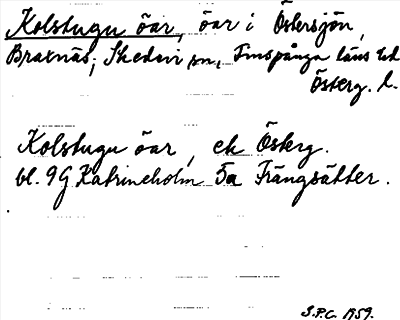 Kolstugu öar, öar i Östersjön,
Braxnäs; Skedevi sn, Finspånga läns hd
Österg. l.
Kolstugu öar, ek Österg.
bl. 9G Katrineholm 5a Trängsätter.
S.P.G. 1959.